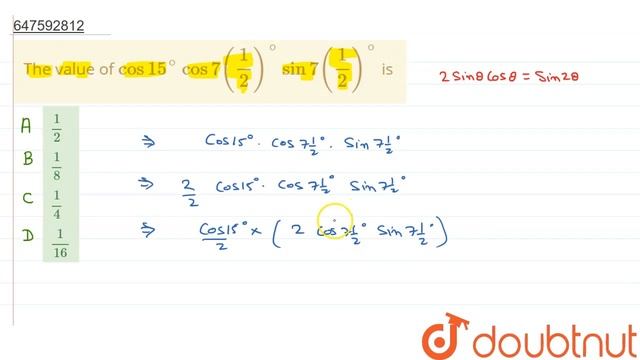 647592812
The value of cos 15° cos 7(1/2)° sin 7(1/2)° is
2 Sinθ Cosθ = Sin2θ
A 1/2
B 1/8
C 1/4
D 1/16
⇒ Cos15° · Cos 7 1/2° · Sin 7 1/2°
⇒ 2/2 Cos15° · Cos 7 1/2° Sin 7 1/2°
⇒ Cos15°/2 × ( 2 Cos 7 1/2° Sin 7 1/2° )
doubtnut